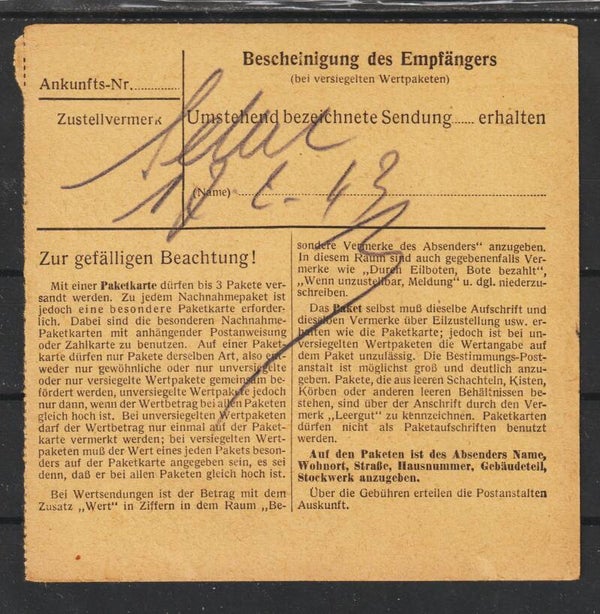 Bescheinigung des Empfängers
(bei versiegelten Wertpaketen)
Ankunfts-Nr.
Zustellvermerk
Umstehend bezeichnete Sendung...... erhalten
(Name)
Zur gefälligen Beachtung!
Mit einer Paketkarte dürfen bis 3 Pakete ver-
sandt werden. Zu jedem Nachnahmepaket ist
jedoch eine besondere Paketkarte erforder-
lich. Dabei sind die besonderen Nachnahme-
Paketkarten mit anhängender Postanweisung
oder Zahlkarte zu benutzen. Auf einer Paket-
karte dürfen nur Pakete derselben Art, also ent-
weder nur gewöhnliche oder nur unversiegelte
oder nur versiegelte Wertpakete gemeinsam be-
fördert werden, unversiegelte Wertpakete jedoch
nur dann, wenn der Wertbetrag bei allen Paketen
gleich hoch ist. Bei unversiegelten Wertpaketen
darf der Wertbetrag nur einmal auf der Paket-
karte vermerkt werden; bei versiegelten Wert-
paketen muß der Wert eines jeden Pakets beson-
ders auf der Paketkarte angegeben sein, es sei
denn, daß er bei allen Paketen gleich hoch ist.
Bei Wertsendungen ist der Betrag mit dem
Zusatz „Wert" in Ziffern in dem Raum „Be-
sondere Vermerke des Absenders" anzugeben.
In diesem Raum sind auch gegebenenfalls Ver-
merke wie „Durch Eilboten, Bote bezahlt",
„Wenn unzustellbar, Meldung" u. dgl. niederzu-
schreiben.
Das Paket selbst muß dieselbe Aufschrift und
dieselben Vermerke über Eilzustellung usw. er-
halten wie die Paketkarte; jedoch ist bei un-
versiegelten Wertpaketen die Wertangabe auf
dem Paket unzulässig. Die Bestimmungs-Post-
anstalt ist möglichst groß und deutlich anzu-
geben. Pakete, die aus leeren Schachteln, Kisten,
Körben oder anderen leeren Behältnissen be-
stehen, sind über der Anschrift durch den Ver-
merk „Leergut" zu kennzeichnen. Paketkarten
dürfen nicht als Paketaufschriften benutzt
werden.
Auf den Paketen ist des Absenders Name,
Wohnort, Straße, Hausnummer, Gebäudeteil,
Stockwerk anzugeben.
Über die Gebühren erteilen die Postanstalten
Auskunft.